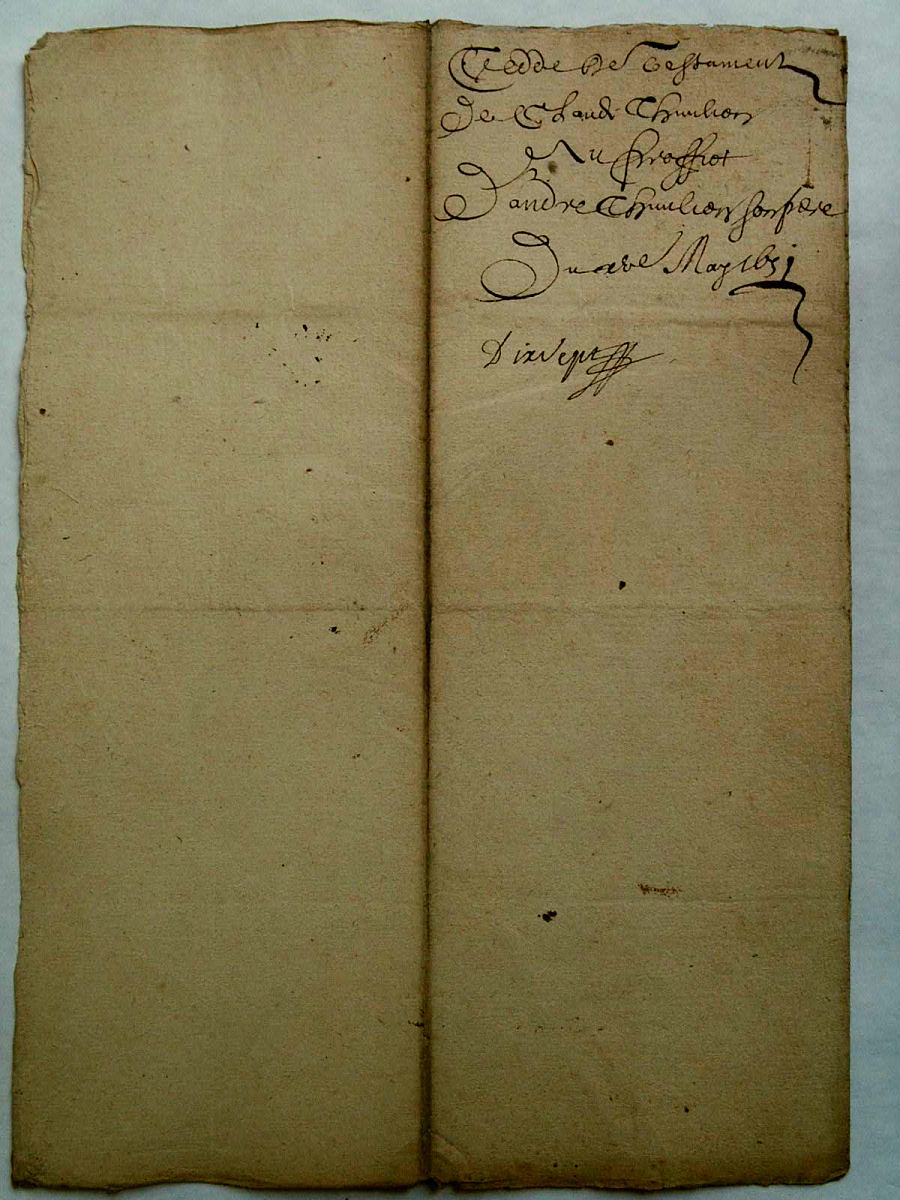 Cedde de Testament
De Claude Thuilier
Au proffict
D'andre Thuilier son pere
Du xve May 1651
Dixsept